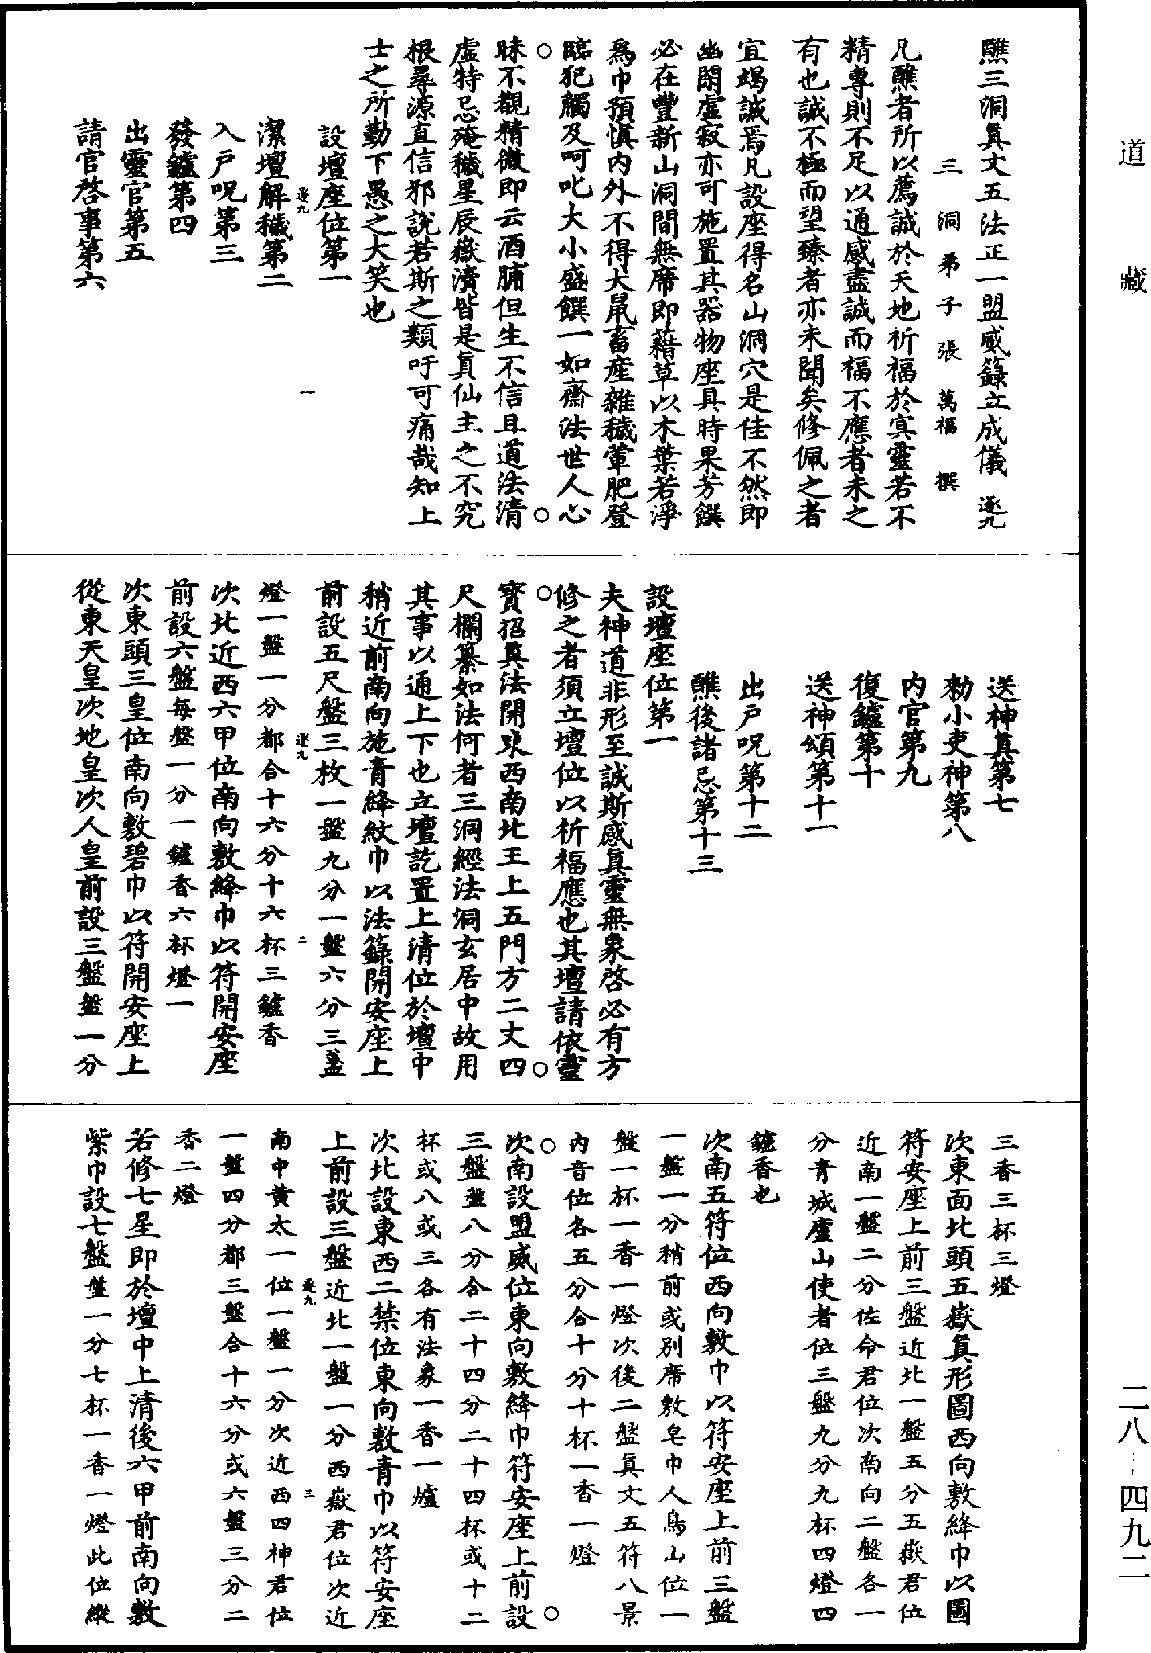 道藏
二八—四九二
醮三洞真文五法正一盟威籙立成儀 逐九
三洞弟子張萬福撰
凡醮者所以薦誠於天地祈福於冥靈若不
精專則不足以通感盡誠而福不應者未之
有也誠不極而望臻者亦未聞矣修佩之者
宜竭誠焉凡設座得名山洞穴是佳不然即
幽閑虛寂亦可施置其器物座具時果芳饌
必在豐新山洞間無席即藉草以木葉若淨
為巾預慎內外不得犬鼠畜産雜穢葷肥登
臨犯觸及呵叱大小盛饌一如齋法世人心
昧不觀精微即云酒脯但生不信且道法清
虛特忌殗穢星辰嶽瀆皆是真仙主之不究
根尋源直信邪說若斯之類吁可痛哉知上
士之所勤下愚之大笑也
設壇座位第一
逐九 一
潔壇解穢第二
入戶呪第三
發鑪第四
出靈官第五
請官啓事第六
送神真第七
勑小吏神第八
內官第九
復鑪第十
送神頌第十一
出戶呪第十二
醮後諸忌第十三
設壇座位第一
夫神道非形至誠斯感真靈無象啓必有方
修之者須立壇位以祈福應也其壇請依靈
寶招真法開東西南北王上五門方二丈四
尺欄纂如法何者三洞經法洞玄居中故用
其事以通上下也立壇訖置上清位於壇中
稍近前南向施青絳紋巾以法籙開安座上
前設五尺盤三枚一盤九分一盤六分三盞
逐九 二
燈一盤一分都合十六分十六杯三鑪香
次北近西六甲位南向敷絳巾以符開安座
前設六盤每盤一分一鑪香六杯燈一
次東頭三皇位南向敷碧巾以符開安座上
從東天皇次地皇次人皇前設三盤盤一分
三香三杯三燈
次東面北頭五嶽真形圖西向敷絳巾以圖
符安座上前三盤近北一盤五分五嶽君位
近南一盤二分佐命君位次南向二盤各一
分青城廬山使者位三盤九分九杯四燈四
鑪香也
次南五符位西向敷巾以符安座上前三盤
一盤一分稍前或別席敷皂巾人鳥山位一
盤一杯一香一燈次後二盤真文五符八景
內音位各五分合十分十杯一香一燈
次南設盟威位東向敷絳巾符安座上前設
三盤盤八分合二十四分二十四杯或十二
杯或八或三各有法象一香一爐
次北設東西二禁位東向敷青巾以符安座
上前設三盤近北一盤一分西嶽君位次近
逐九 三
南中黃太一位一盤一分次近西四神君位
一盤四分都三盤合十六分或六盤三分二
香二燈
若修七星即於壇中上清後六甲前南向敷
紫巾設七盤盤一分七杯一香一燈此位縱